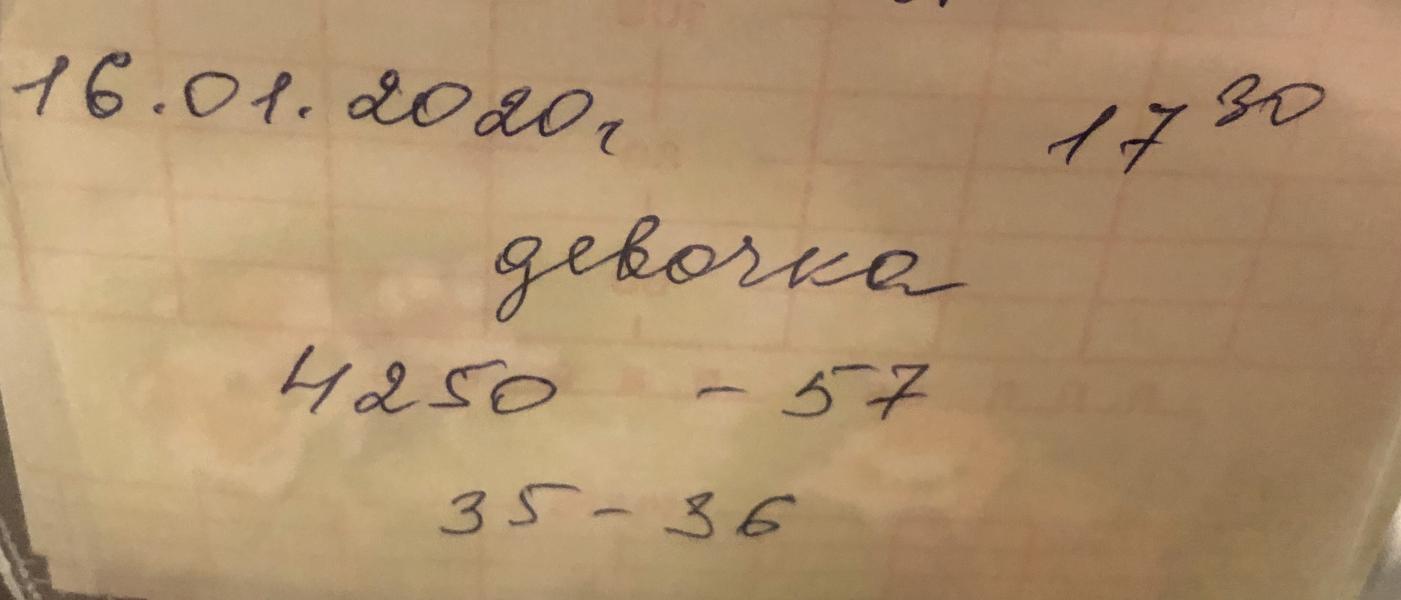 16.01.2020г 17³⁰
девочка
4250 - 57
35 - 36